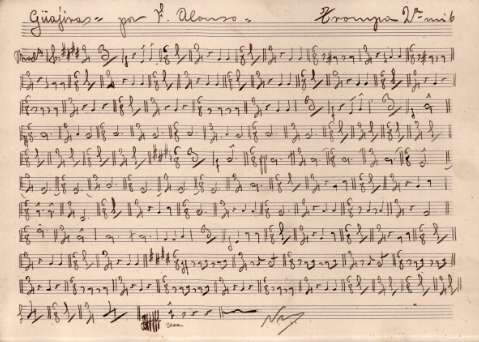 Güajiras= por F. Alonso= Trompa 2ª mi b